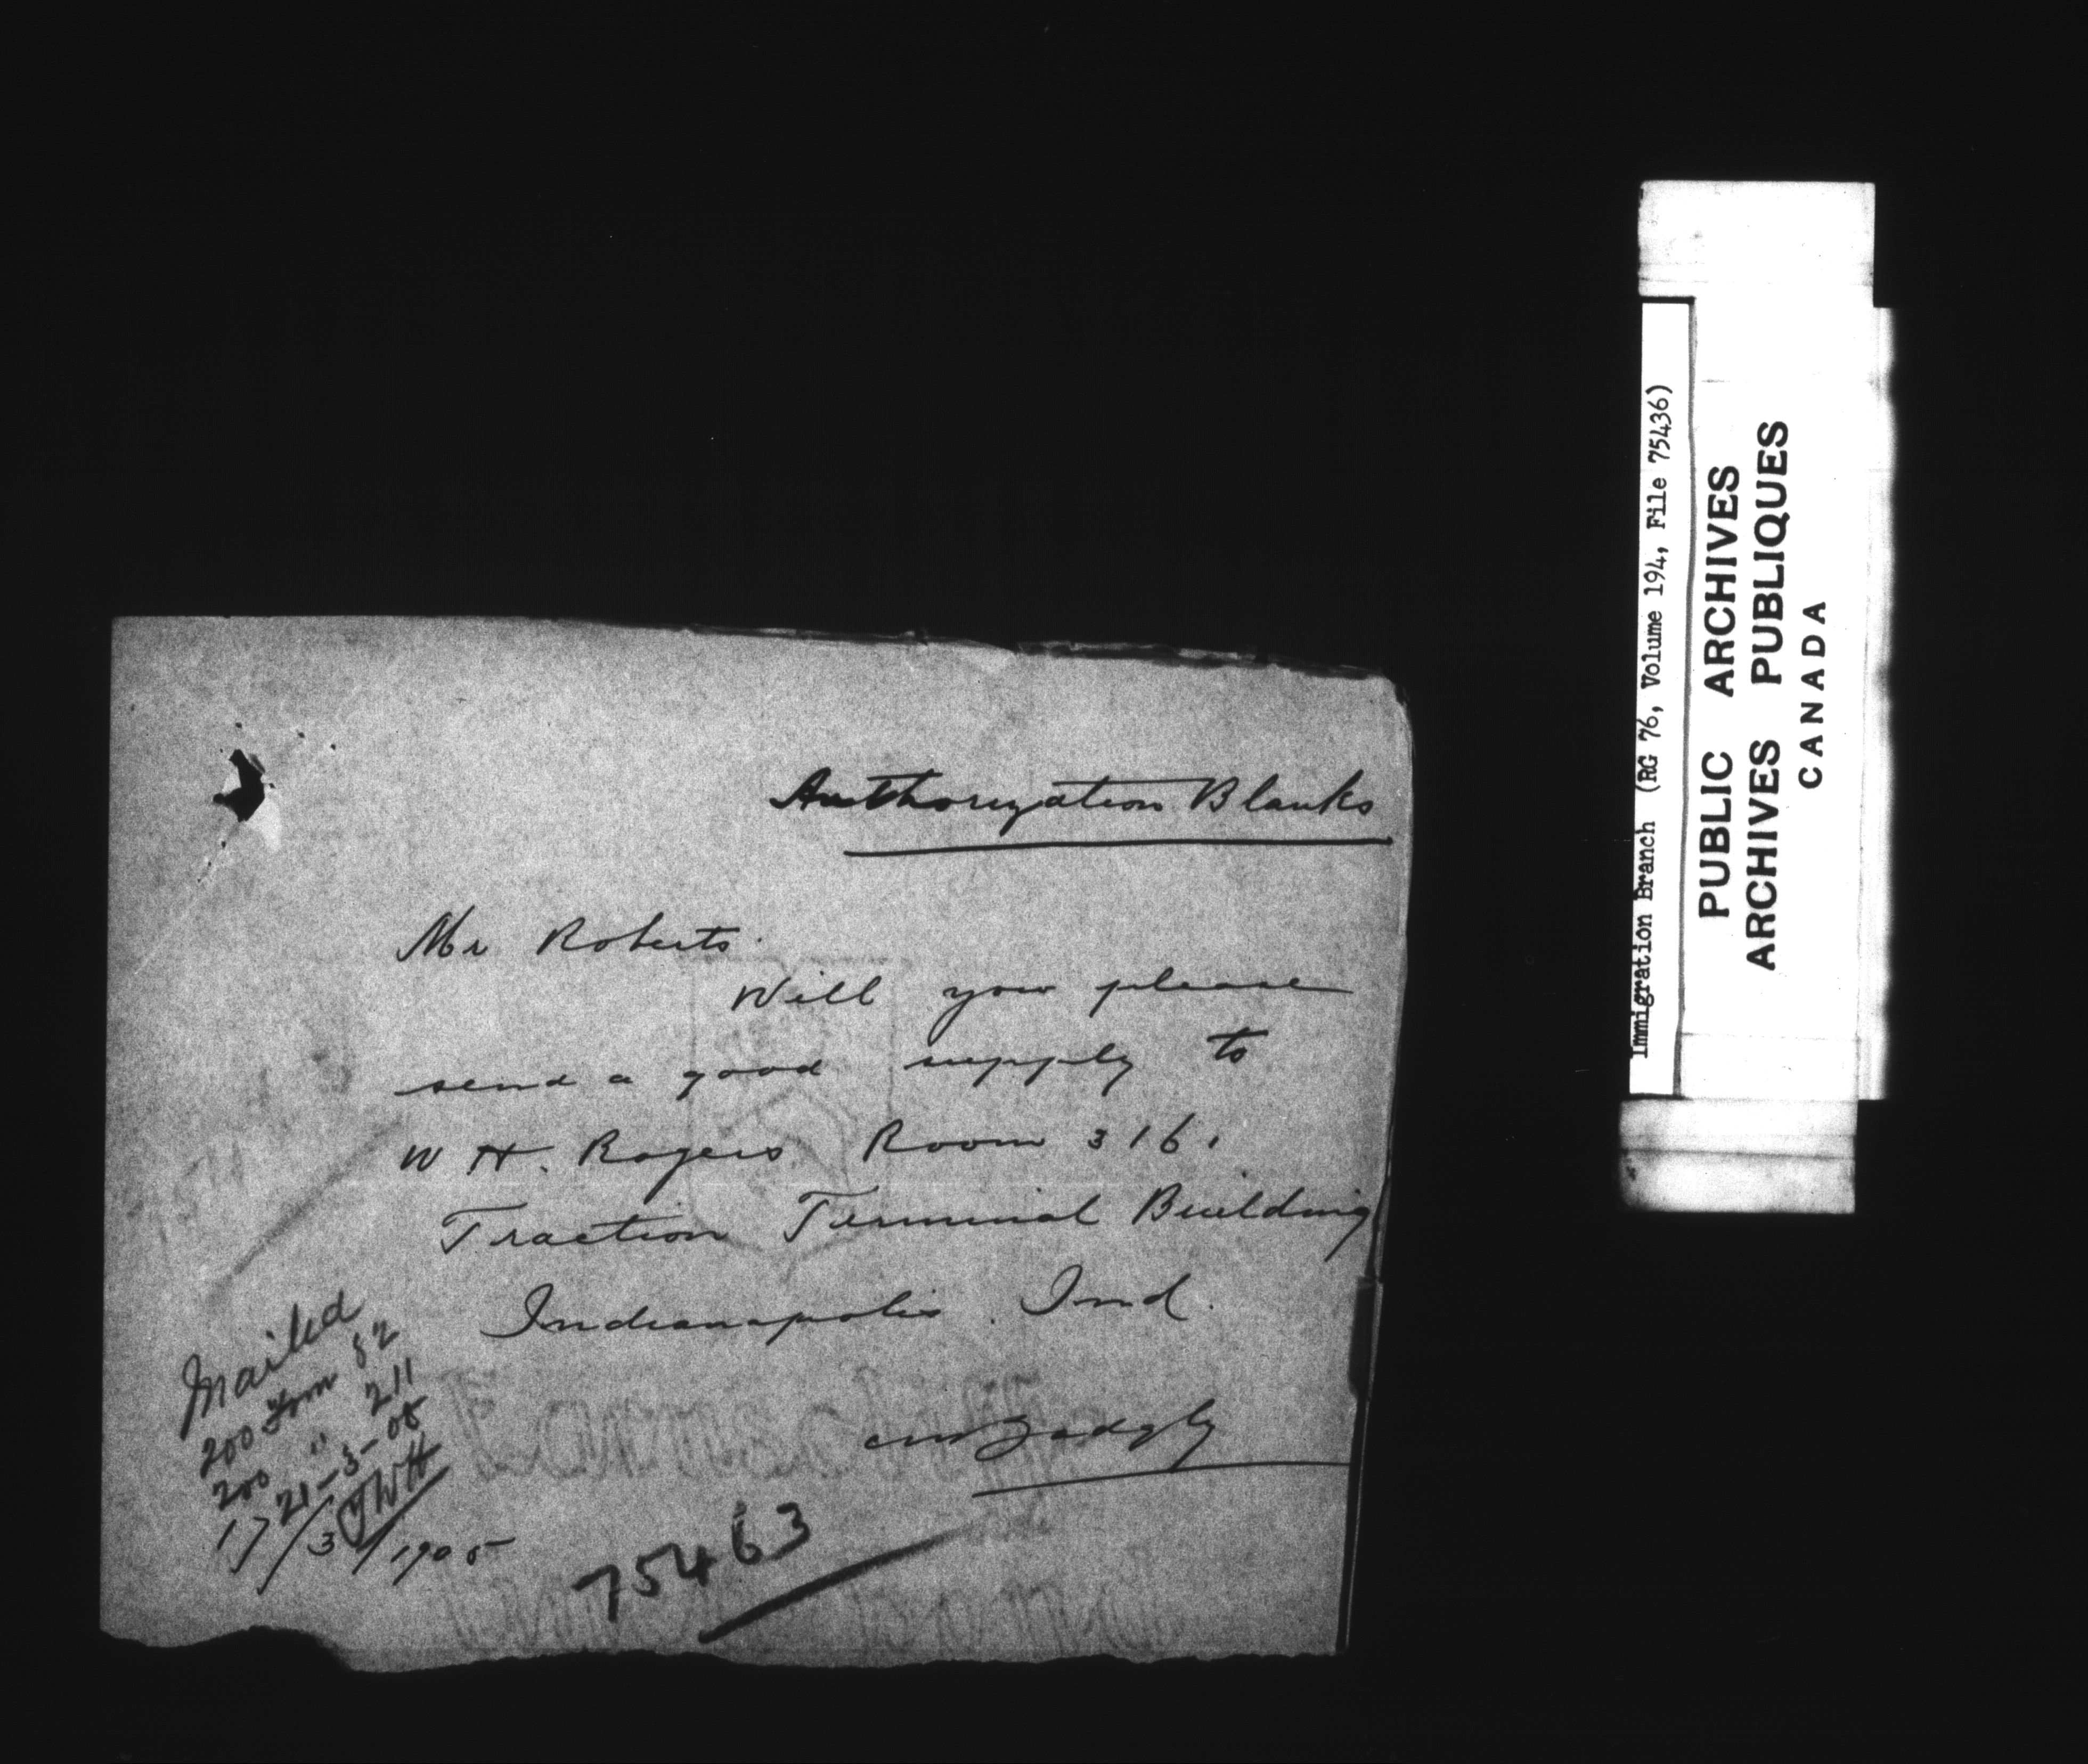 Authorization Blanks
Mr Roberts.
Will you please
send a good supply to
W H. Rogers Room 316.
Traction Terminal Building
Indianapolis. Ind.
Mailed
200 Form 82
200 " 211
21-3-05
JWH
17/3/1905
75463
Immigration Branch (RG 76, Volume 194, File 75436)
PUBLIC ARCHIVES
ARCHIVES PUBLIQUES
CANADA